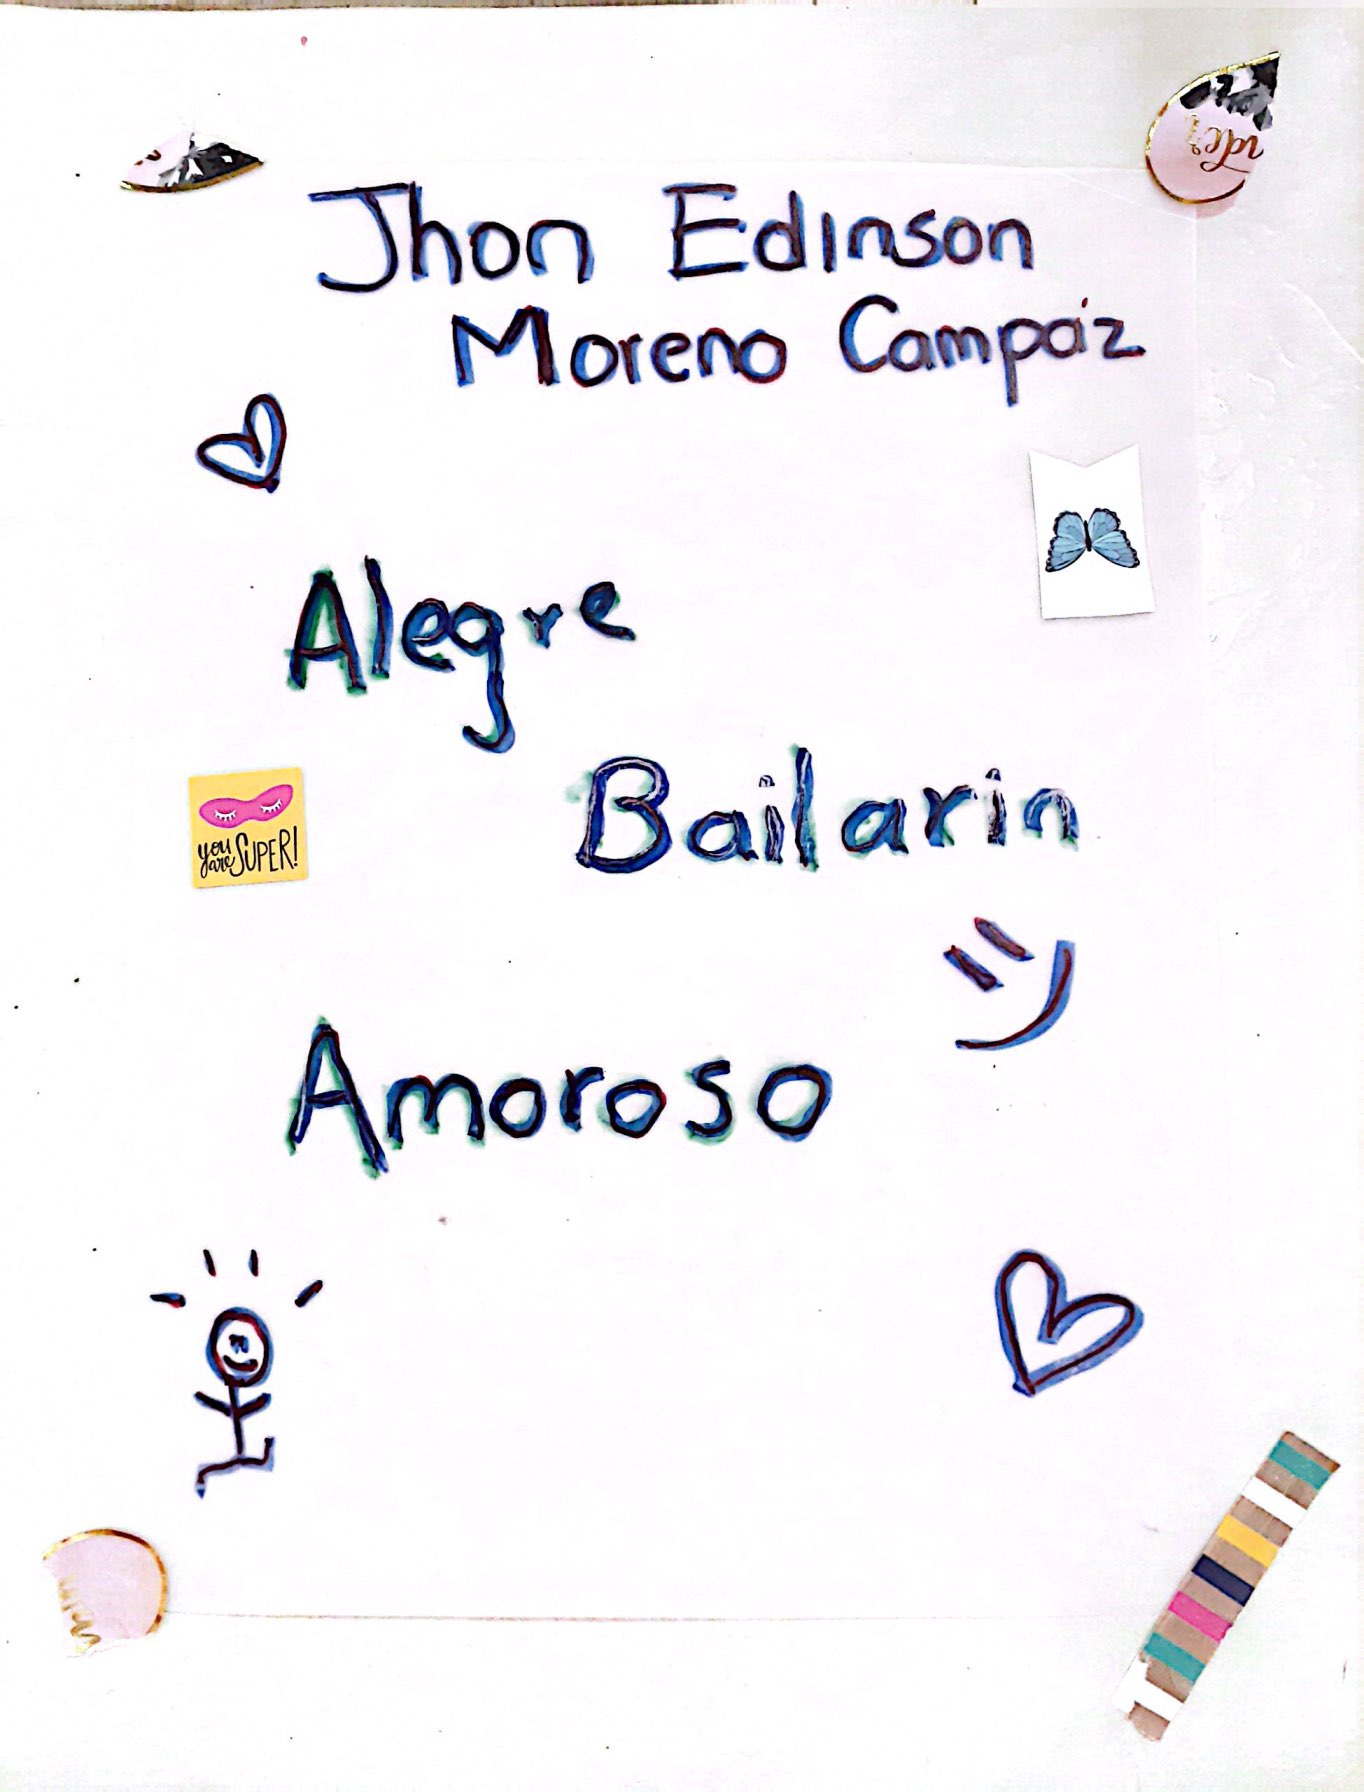 Jhon Edinson
Moreno Campáz
Alegre
Bailarin
you are SUPER!
Amoroso